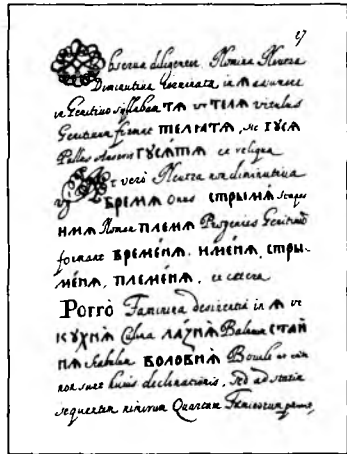 27
Observa diligenter Nomina Neutra
Diminutiva terminata in ѧ assumere
in Genitivo syllabam тѧ ut телѧ vitulus
Genitivum format телѧтѧ, sic гусѧ
Pullus Anseris гусѧтѧ et reliqua
At verò Neutra non diminutiva
бремѧ Onus стрымѧ stapes
имѧ Nomen племѧ Progenies Genitivũ
formant бремéнѧ. имéнѧ, стры-
мéнѧ, племéнѧ, et cætera
Porrò Fæminina desinentia in ѧ ut
кухнѧ Culina лáзнѧ Balneum стáй
нѧ stabulum боловнѧ
non sunt huius declinationis, sed ad statim
sequentem nimirum Quartam Fæmininorum